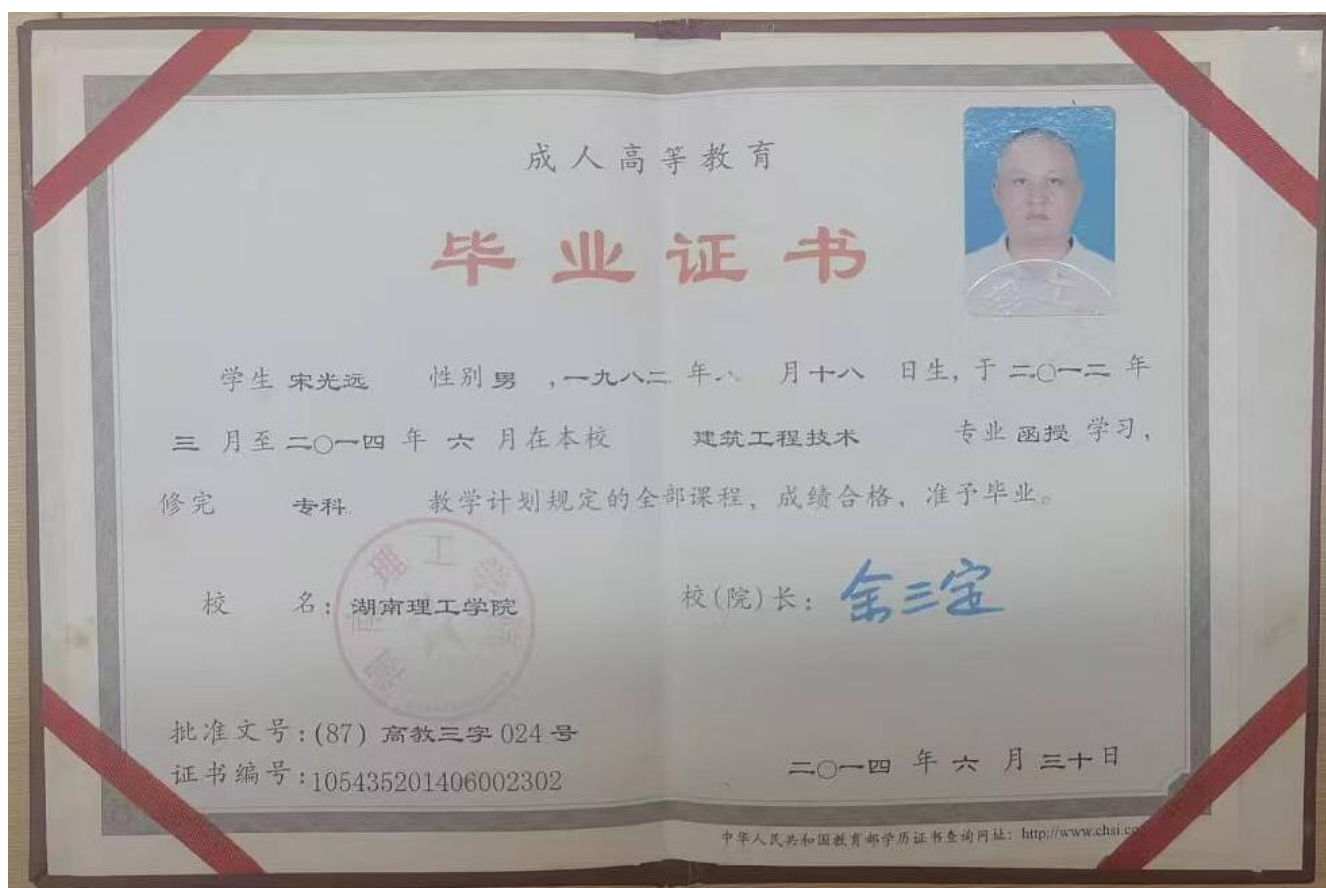 成人高等教育
毕业证书
学生 宋光远 性别 男 ,一九八二 年 八 月 十八 日生, 于 二〇一二 年
三 月至 二〇一四 年 六 月在本校 建筑工程技术 专业 函授 学习,
修完 专科 教学计划规定的全部课程, 成绩合格, 准予毕业。
校 名: 湖南理工学院 校(院)长: 余三定
湖南理工学院
批准文号:(87) 高教三字 024 号
证书编号:105435201406002302
二〇一四 年 六 月 三十 日
中华人民共和国教育部学历证书查询网址: http://www.chsi.co